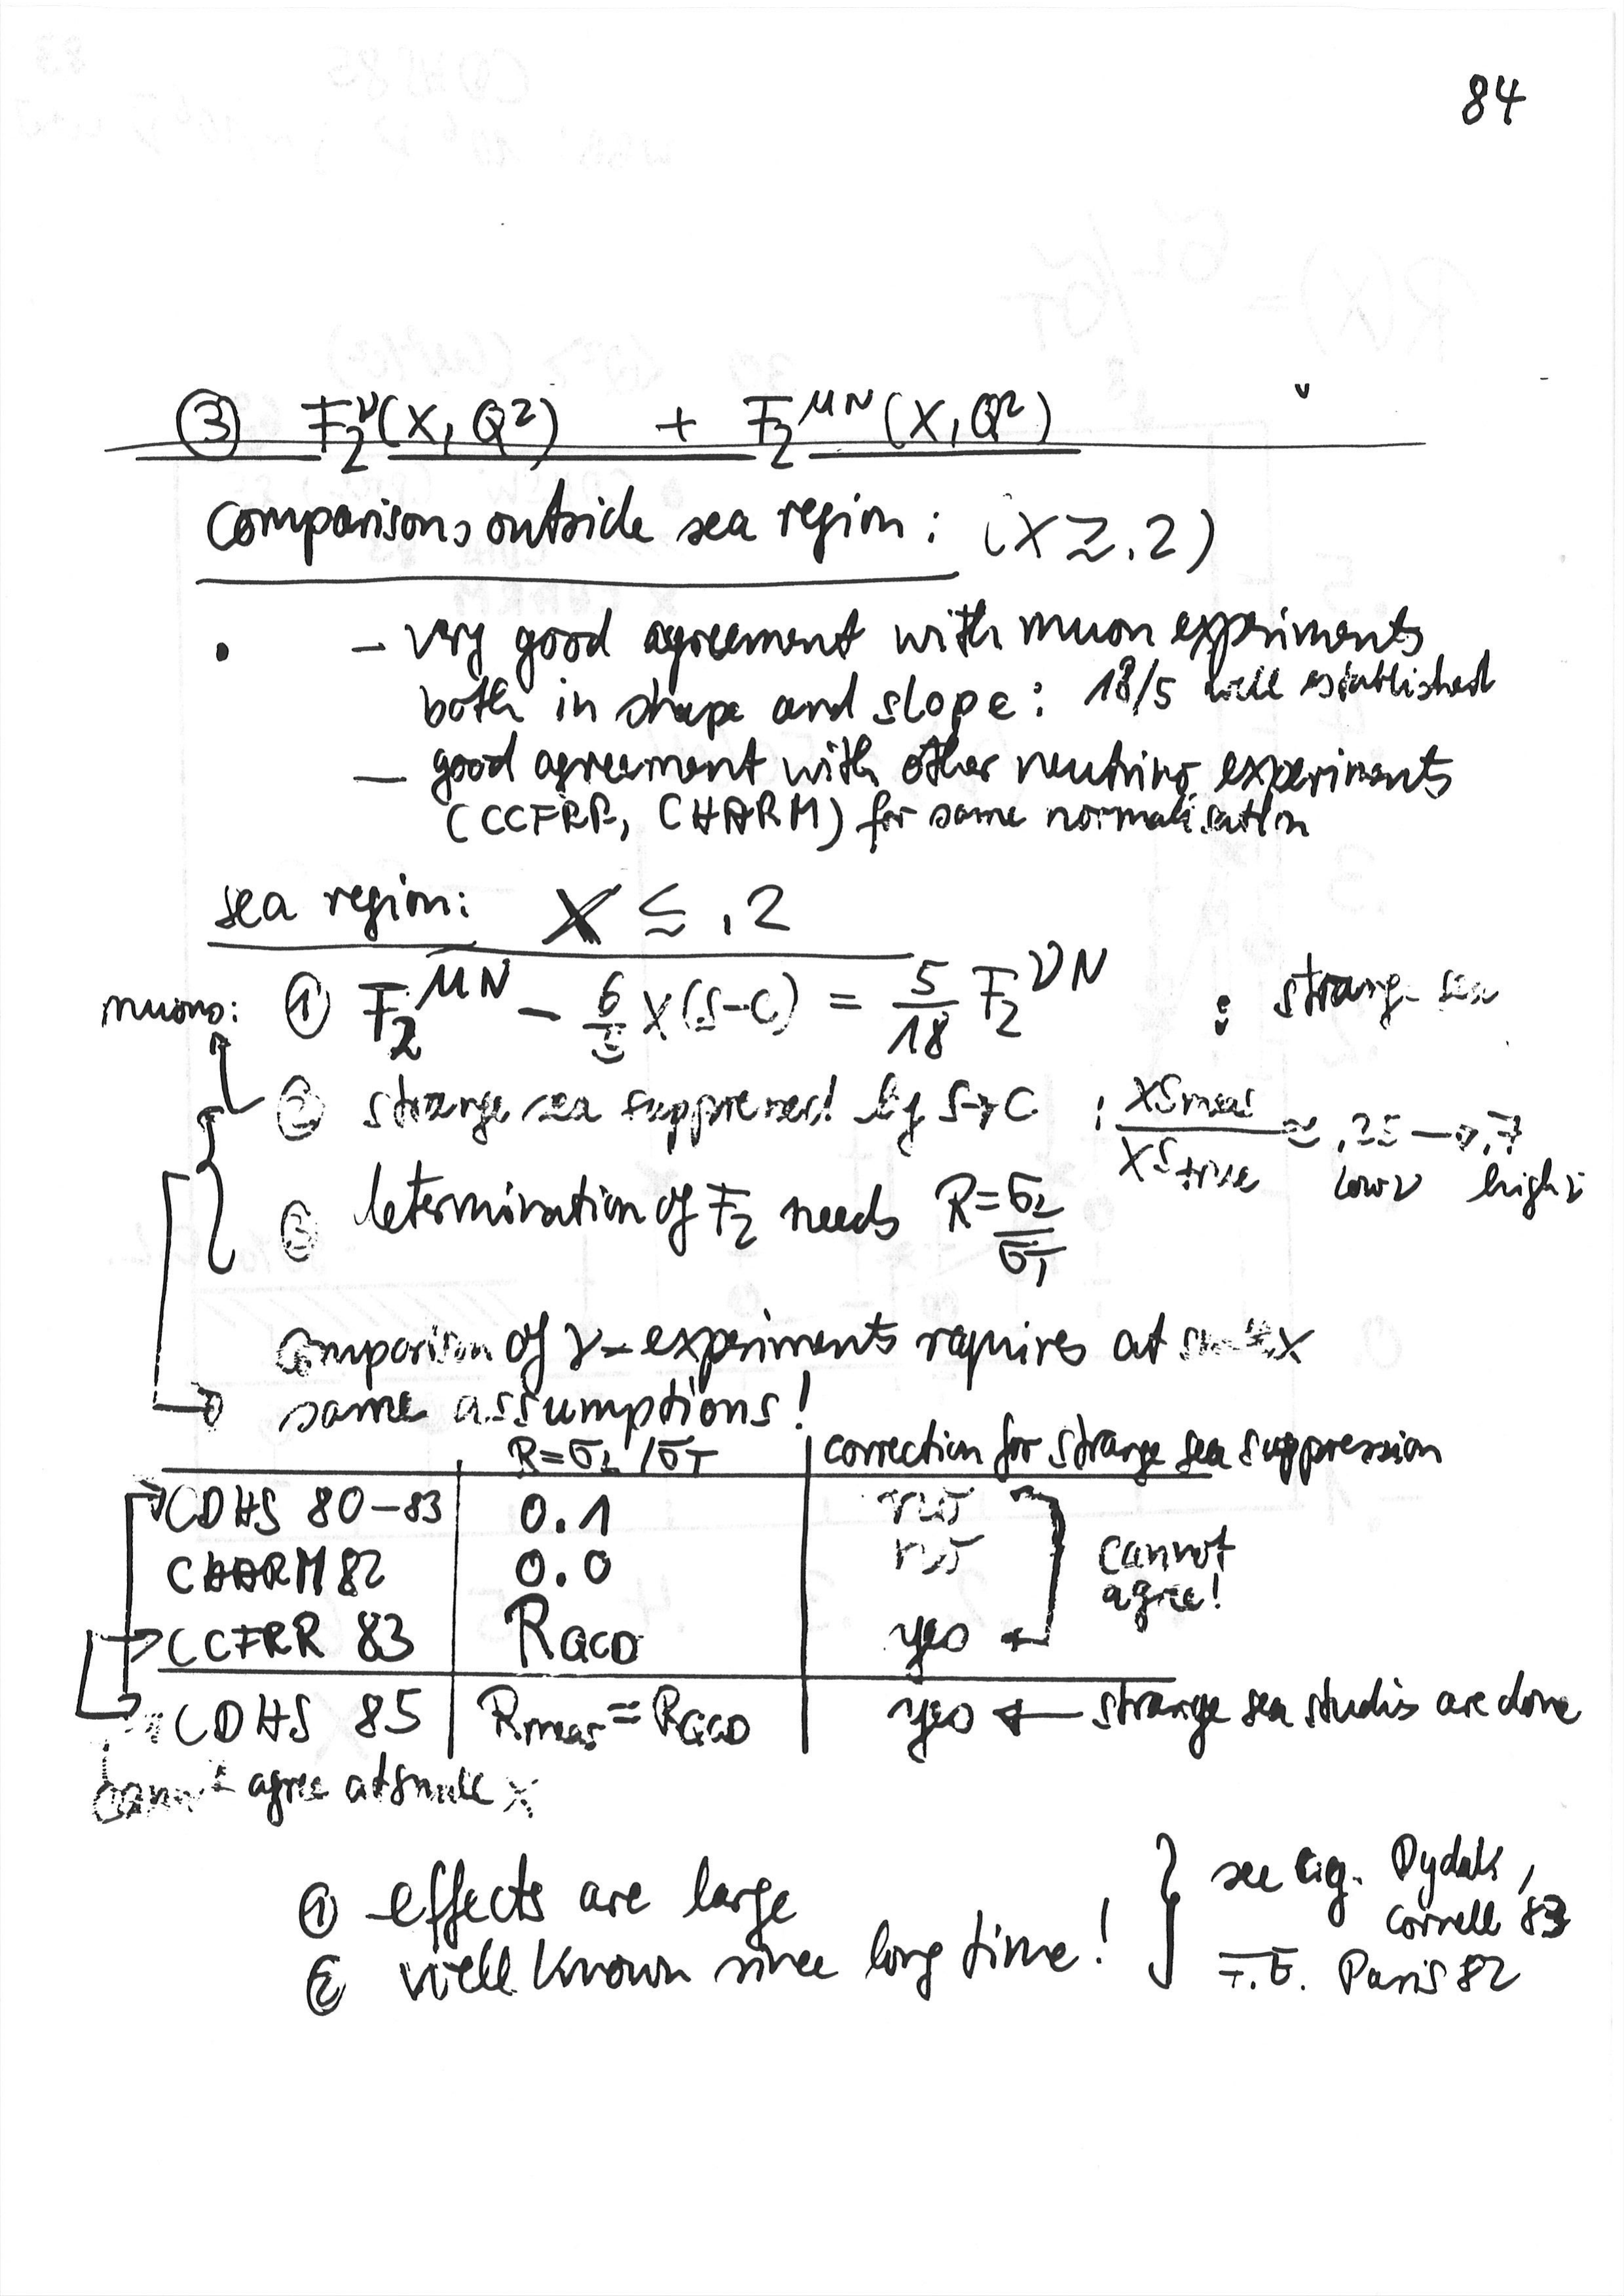 84
③ F₂^ν(x,Q²) + F₂^μN(x,Q²)
Comparisons outside sea region: (x ≳ .2)
• – very good agreement with muon experiments
both in shape and slope: 18/5 well established
– good agreement with other neutrino experiments
(CCFRR, CHARM) for same normalisation
sea region: x ≲ .2
muons: ① F₂^μN – 6/ x(s-c) = 5/18 F₂^νN : strange sea
② strange sea suppressed by s→c : xs_meas/xs_true ≈ .25 → .7
low ν high ν
③ determination of F₂ needs R=σL/σT
comparison of ν-experiments requires at small x
same assumptions!
R=σL/σT correction for strange sea suppression
CDHS 80-83 0.1 no
CHARM 82 0.0 no cannot agree!
CCFRR 83 R_QCD yes
CDHS 85 R_meas = R_QCD yes ← strange sea studies are done
cannot agree at small x
① effects are large
② well known since long time!
see e.g. Dydak,
Cornell 83
F.E. Paris 82